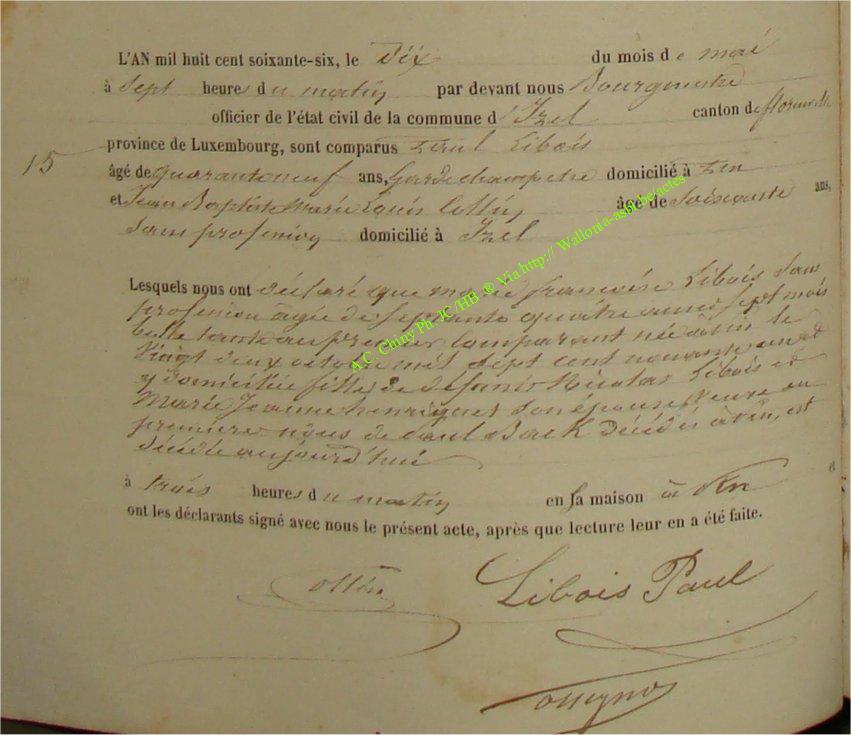 L'AN mil huit cent soixante-six, le dix du mois de mai
à Sept heures du matin par devant nous Bourgmestre
officier de l'état civil de la commune d'Izel canton de florenville
15
province de Luxembourg, sont comparus Paul Libois
âgé de quaranteneuf ans, Gardechampetre domicilié à Pin
et Jean Baptiste Marie Louis Collin âgé de Soixante ans,
Sans profession domicilié à Izel
Lesquels nous ont déclaré que marie françoise Libois Sans
profession agée de septante quatre années sept mois
belle tante au premier Comparant née à Pin le
Vingt deux octobre mil sept cent nonante un et
y domiciliée fille de defunts Nicolas Libois et
Marie Jeanne henriquet Son épouse, Veuve en
première noces de Paul Back décédés à Pin, est
décédée aujourd'hui
à trois heures du matin en sa maison à Pin et
ont les déclarants signé avec nous le présent acte, après que lecture leur en a été faite.
Collin Libois Paul
A.C. Chiny Ph. JC/HB ® Via http:// Wallonia-asbl.be/actes